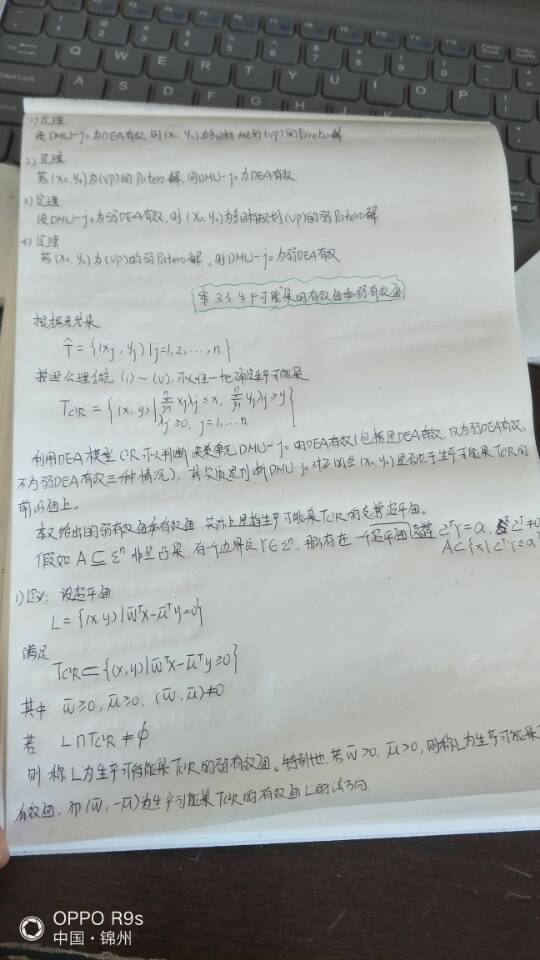 1) 定理
设DMU-j₀为DEA有效,则(x₀, y₀)为多目标规划(VP)的Pareto解
2) 定理
若(x₀, y₀)为(VP)的Pateno解,则DMU-j₀为DEA有效
3) 定理
设DMU-j₀为弱DEA有效,则(x₀, y₀)为多目标规划(VP)的弱Pateno解
4) 定理
若(x₀, y₀)为(VP)的弱Pateno解,则DMU-j₀为弱DEA有效
第3.3 生产可能集的有效面和弱有效面
根据参考集
T̂ = {(xⱼ, yⱼ) | j=1,2,…,n}
按照公理系统(i)~(v),可以唯一地确定生产可能集
T_C²R = {(x, y) | Σⁿⱼ₌₁ xⱼλⱼ ≤ x, Σⁿⱼ₌₁ yⱼλⱼ ≥ y
λⱼ ≥ 0, j=1,…n}
利用DEA模型C²R可以判断决策单元DMU-j₀的DEA有效(包括是DEA有效,仅为弱DEA有效,
不为弱DEA有效三种情况),其实质是判断DMU-j₀对应的点(x₀, y₀)是否处于生产可能集T_C²R的
前沿面上。
本文给出的弱有效面和有效面,实际上是指生产可能集T_C²R的支撑超平面。
假如A⊆Eⁿ非空凸集,有一个边界点Y∈Eⁿ,那么存在一个超平面支撑 zᵀY=a, zᵀ≠0
A⊂{x|zᵀY≤a}
1) 定义: 设超平面
L = {(x, y) | w̄ᵀx-μ̄ᵀy=0}
满足
T_C²R ⊂ {(x, y) | w̄ᵀx-μ̄ᵀy≥0}
其中 w̄≥0, μ̄≥0, (w̄, μ̄)≠0
若 L∩T_C²R ≠ ϕ
则称L为生产可能集T_C²R的弱有效面。特别地,若w̄>0, μ̄>0,则称L为生产可能集T
有效面,而(w̄, -μ̄)为生产可能集T_C²R的有效面L的法方向.
OPPO R9s
中国·锦州